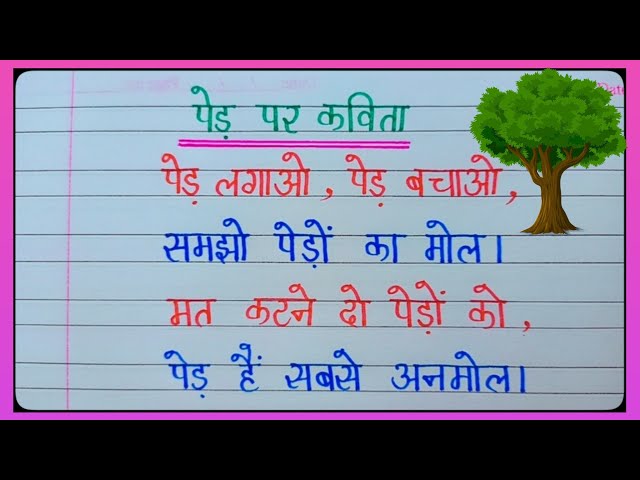 पेड़ पर कविता
पेड़ लगाओ, पेड़ बचाओ,
समझो पेड़ों का मोल।
मत कटने दो पेड़ों को,
पेड़ हैं सबसे अनमोल।